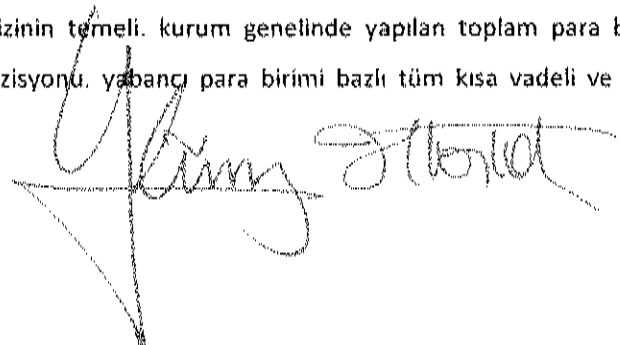 izinin temeli. kurum genelinde yapılan toplam para b
zisyonu. yabancı para birimi bazlı tüm kısa vadeli ve